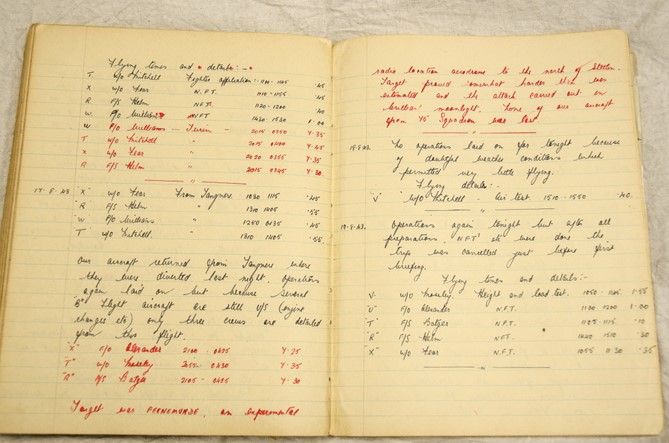 Flying times and details:-
T W/O Mitchell Fighter affiliation:- 1100 - 1145 .45
X W/O Fear N.F.T. 1110 - 1155 .45
R F/S Helm N.F.T. 1120 - 1200 .40
W P/O Williams NFT 1430 - 1530 1.00
W P/O Williams - Turin - 2015 0350 7.35
T W/O Mitchell " 2015 0400 7.45
X W/O Fear " 2020 0355 7.35
R F/S Helm " 2015 0345 7.30
17.8.43 X" W/O Fear From Tangmere 1030 1115 .45
R F/S Helm " 1310 1405 .55
W P/O Williams " 1250 .45
T W/O Mitchell. " 1310 1405 .55
Our aircraft returned from Tangmere where
they were diverted last night. Operations
again laid on but because several
B" Flight aircraft are still U/S (engine
changes etc) only three crews are detailed
from this flight.
"X" F/O Alexander 2100 - 0425 7.25
"T" W/O Moseley 0420 7.30
"R" F/S Batger 2105 - 0435 7.30
Target was PEENEMUNDE, an experimental
radio location aerodrome to the north of Stettin.
Target proved somewhat harder than was
estimated and the attack carried out in
brilliant moonlight. None of our aircraft
from 45 Squadron was lost.
18.8.43. No operations laid on for tonight because
of doubtful weather conditions which
permitted very little flying.
Flying details:-
"V" W/O Mitchell. Air test. 1510 - 1550 .40.
19.8.43. Operations again tonight but after all
preparations, NFT's etc were done the
trip was cancelled just before first
briefing.
Flying times and details:-
V. W/O Moseley Height and load test. 1050 1.55
"U" F/O Alexander N.F.T. 1100 1200 1.00
"T" F/S Batger N.F.T. 1105 1115 .10
"R" F/S Helm N.F.T. 1440 1510 .30
"X" W/O Fear N.F.T. 1055 1130 .35